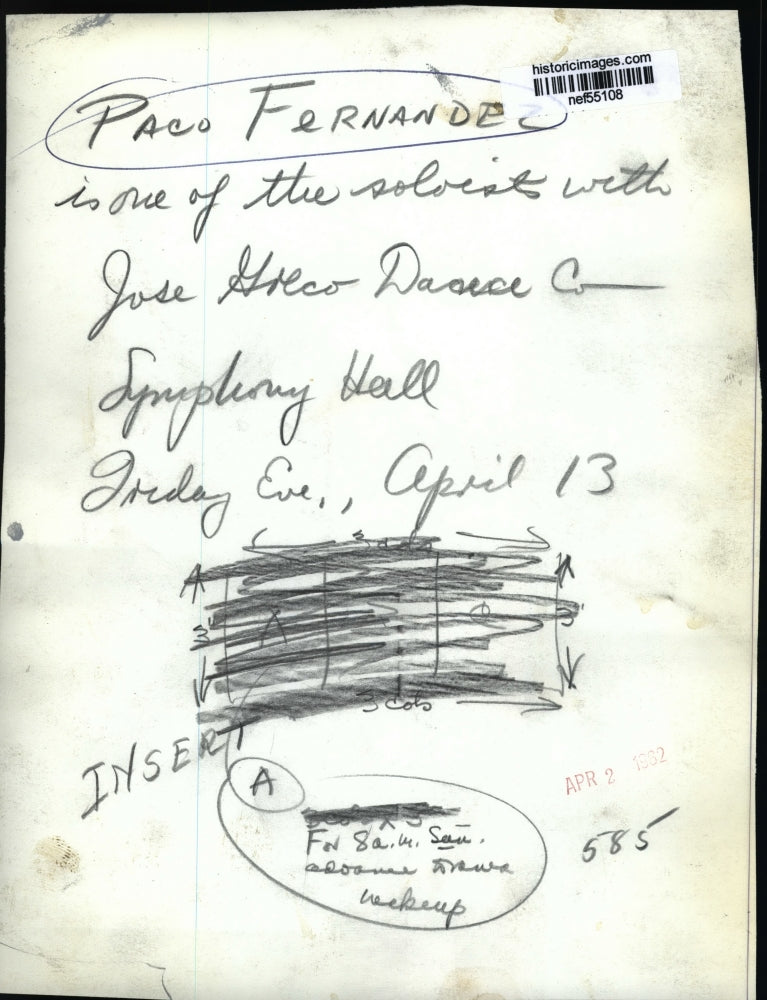 historicimages.com
nef55108
PACO FERNANDEZ
is one of the soloists with
Jose Greco Dance Co
Symphony Hall
Friday Eve., April 13
3 cols
3"
A
3"
3 cols
INSERT
A
APR 2 1962
For 8 a.m. Sun.
advance drama
makeup
585